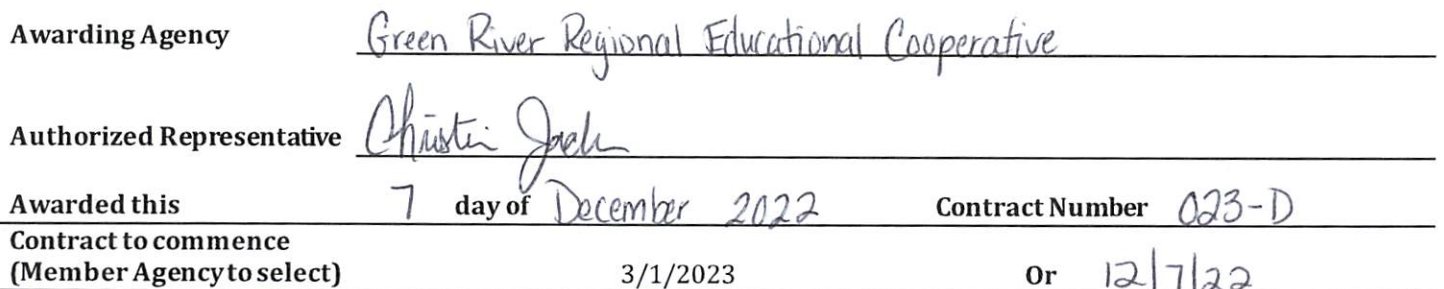 Awarding Agency Green River Regional Educational Cooperative
Authorized Representative Christi
Awarded this 7 day of December 2022 Contract Number 023-D
Contract to commence
(Member Agency to select) 3/1/2023 Or 12/7/22